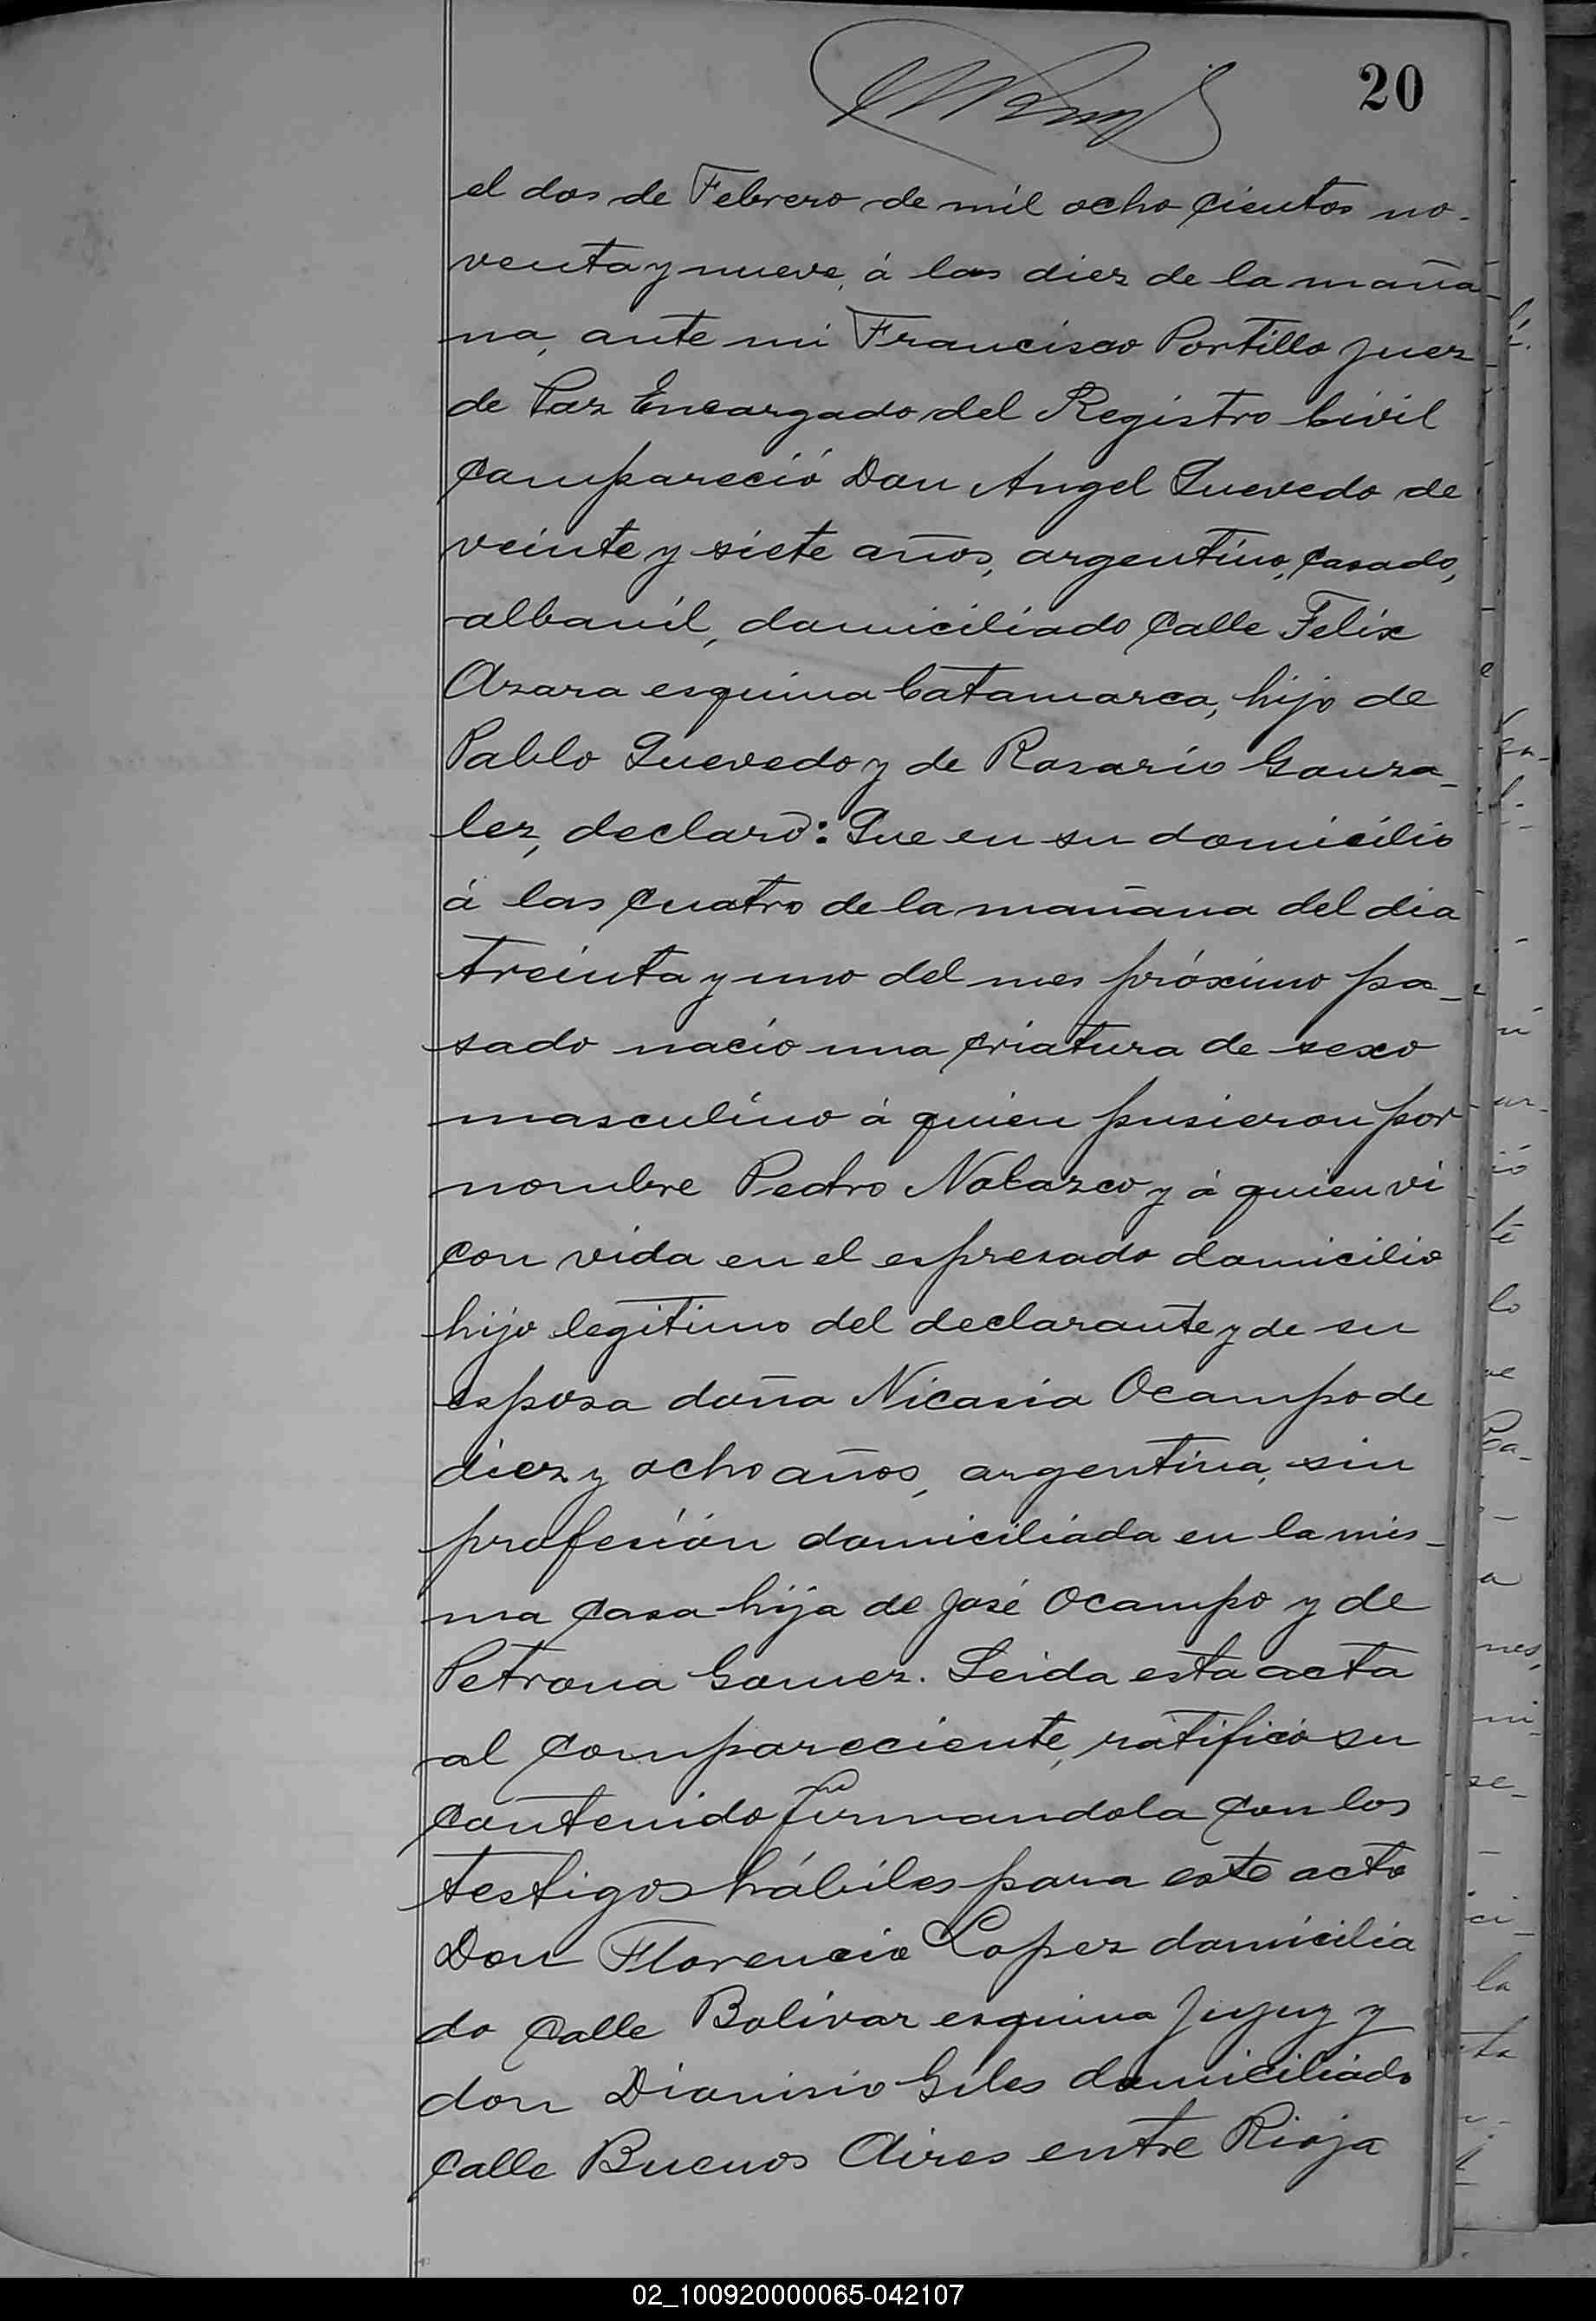 20
el dos de Febrero de mil ocho cientos no-
venta y nueve, á las diez de la maña-
na, ante mi Francisco Portillo Juez
de Paz Encargado del Registro Civil
Compareció Don Angel Quevedo de
veinte y siete años, argentino, Casado,
albañil, domiciliado Calle Felix
Azara esquina Catamarca, hijo de
Pablo Quevedo y de Rosario Gonza-
lez, declaró: Que en su domicilio
á las Cuatro de la mañana del dia
treinta y uno del mes próximo pa-
sado nació una Criatura de sexo
masculino á quien pusieron por
nombre Pedro Nolazco y á quien vi
Con vida en el espresado domicilio
hijo legítimo del declarante y de su
esposa doña Nicasia Ocampo de
diez y ocho años, argentina, sin
profesión domiciliada en la mis-
ma Casa hija de José Ocampo y de
Petrona Gomez. Leida esta acta
al Compareciente, ratificó su
Contenido firmandola Con los
testigos hábiles para este acto
Don Florencio Lopez domicilia
do Calle Bolivar esquina Jujuy y
don Dionisio Giles domiciliado
Calle Buenos Aires entre Rioja
02_100920000065-042107